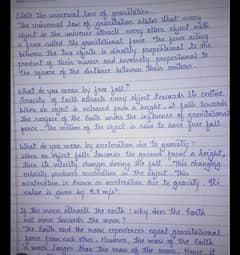 State the universal law of gravitation.
The universal law of gravitation states that every
object in the universe attracts every other object with
a force called the gravitational force. The force acting
between the two objects is directly proportional to the
product of their masses and inversely proportional to
the square of the distance between their centers.
What do you mean by free fall?
Gravity of Earth attracts every object towards its centre.
When an object is released from a height, it falls towards
the surface of the Earth under the influence of gravitational
force. The motion of the object is said to have free fall.
What do you mean by acceleration due to gravity -
When an object falls towards the ground from a height,
then its velocity changes during the fall. This changing
velocity produces acceleration in the object. This
acceleration is known as acceleration due to gravity. Its
value is given by 9.8 m/s²
If the moon attracts the earth, why does the Earth
not move towards the moon?
The Earth and the moon experiences equal gravitational
force from each other. However, the mass of the Earth
is much larger than the mass of the moon. Hence, it